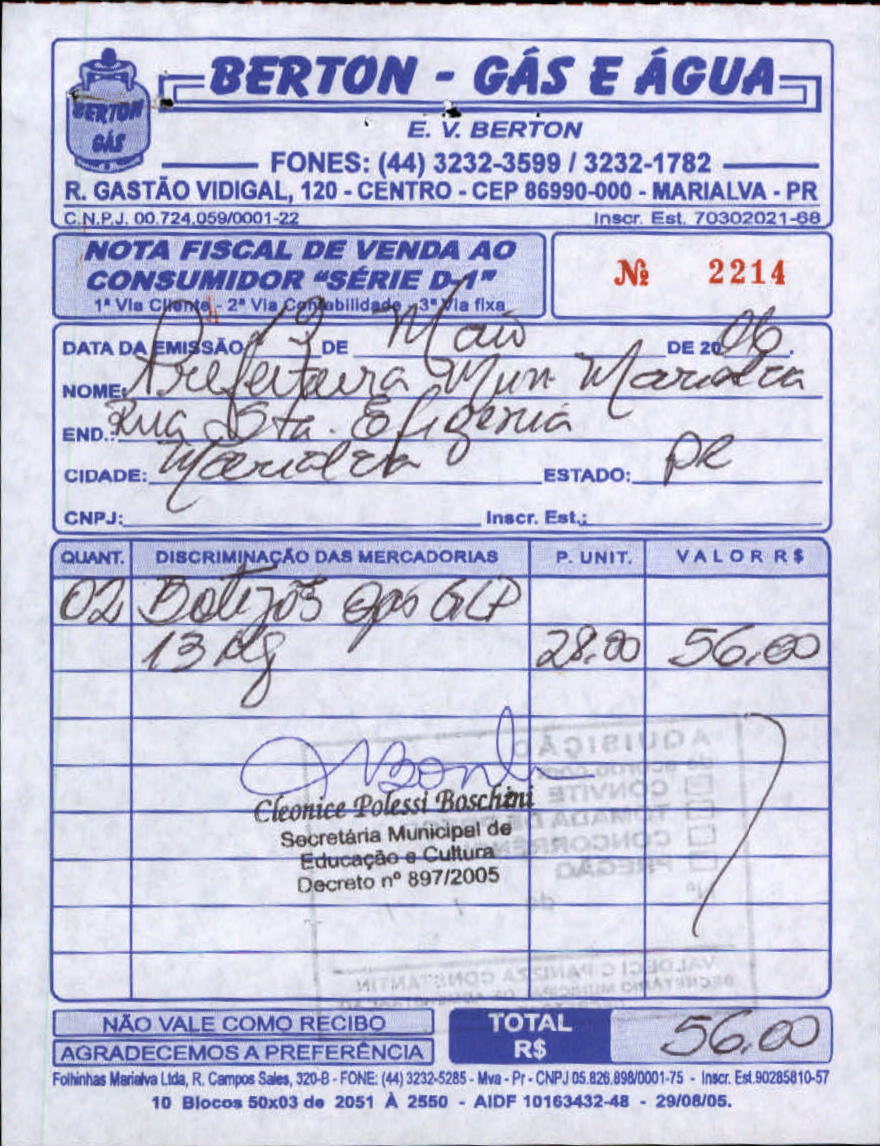 BERTON GÁS
BERTON - GÁS E ÁGUA
E. V. BERTON
FONES: (44) 3232-3599 / 3232-1782
R. GASTÃO VIDIGAL, 120 - CENTRO - CEP 86990-000 - MARIALVA - PR
C.N.P.J. 00.724.059/0001-22 Inscr. Est. 70302021-68
NOTA FISCAL DE VENDA AO
CONSUMIDOR “SÉRIE D-1”
Nº 2214
1ª Via Cliente - 2ª Via Contabilidade - 3ª Via fixa
DATA DA EMISSÃO DE Maio DE 2006.
NOME: Prefeitura Mun Marialva
END.: Rua Sta. Efigenia
CIDADE: Marialva ESTADO: PR
CNPJ: Inscr. Est.:
QUANT. DISCRIMINAÇÃO DAS MERCADORIAS P. UNIT. VALOR R$
02 Botijõs gas GLP
13 kg 28.00 56.00
AQUISIÇÃO
CONVITE
TOMADA DE
CONCORRÊNCIA
PREGÃO
Nº de
Cleonice Polessi Boschini
Secretária Municipal de
Educação e Cultura
Decreto nº 897/2005
VALDECI C PANIZZA CONSTANTIN
NÃO VALE COMO RECIBO
AGRADECEMOS A PREFERÊNCIA
TOTAL R$ 56.00
Folhinhas Marialva Ltda, R. Campos Sales, 320-B - FONE: (44) 3232-5285 - Mva - Pr - CNPJ 05.826.898/0001-75 - Inscr. Est.90285810-57
10 Blocos 50x03 de 2051 À 2550 - AIDF 10163432-48 - 29/08/05.